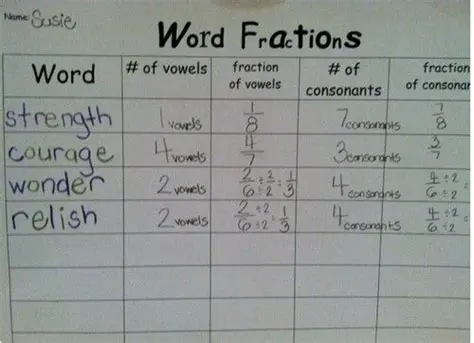 Name: Susie
Word Fractions
Word # of vowels fraction of vowels # of consonants fraction of consonan
strength 1 vowels 1/8 7 consonants 7/8
courage 4 vowels 4/7 3 consonants 3/7
wonder 2 vowels 2/6 ÷2/÷2 = 1/3 4 consonants 4/6 ÷2/÷2 =
relish 2 vowels 2/6 ÷2/÷2 = 1/3 4 consonants 4/6 ÷2/÷2 =